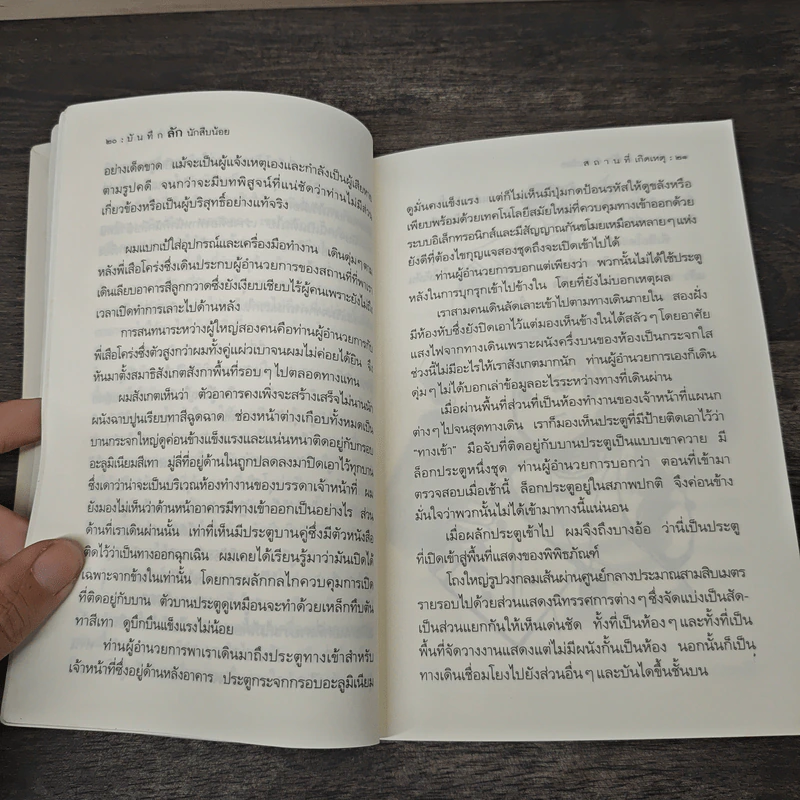 ๒๐ : บั น ทึ ก ลัก นักสืบน้อย
อย่างเด็ดขาด แม้จะเป็นผู้แจ้งเหตุเองและกำลังเป็นผู้เสียหาย
ตามรูปคดี จนกว่าจะมีบทพิสูจน์ที่แน่ชัดว่าท่านไม่มีส่วน
เกี่ยวข้องหรือเป็นผู้บริสุทธิ์อย่างแท้จริง
ผมแบกเป้ใส่อุปกรณ์และเครื่องมือทำงาน เดินตุ่มๆตาม
หลังพี่เสือโคร่งซึ่งเดินประกบผู้อำนวยการของสถานที่ที่พาเรา
เดินเลียบอาคารสีลูกกวาดซึ่งยังเงียบเชียบไร้ผู้คนเพราะยังไม่ถึง
เวลาเปิดทำการเลาะไปด้านหลัง
การสนทนาระหว่างผู้ใหญ่สองคนคือท่านผู้อำนวยการกับ
พี่เสือโคร่งซึ่งตัวสูงกว่าผมทั้งคู่แผ่วเบาจนผมไม่ค่อยได้ยิน จึง
หันมาตั้งสมาธิสังเกตสังกาพื้นที่รอบๆไปตลอดทางแทน
ผมสังเกตเห็นว่า ตัวอาคารคงเพิ่งจะสร้างเสร็จไม่นานนัก
ผนังฉาบปูนเรียบทาสีฉูดฉาด ช่องหน้าต่างเกือบทั้งหมดเป็น
บานกระจกใหญ่ดูค่อนข้างแข็งแรงและแน่นหนาติดอยู่กับกรอบ
อะลูมิเนียมสีเทา มู่ลี่ที่อยู่ด้านในถูกปลดลงมาปิดเอาไว้ทุกบาน
ซึ่งเดาว่าน่าจะเป็นบริเวณห้องทำงานของบรรดาเจ้าหน้าที่ ผม
ยังมองไม่เห็นว่าด้านหน้าอาคารมีทางเข้าออกเป็นอย่างไร ส่วน
ด้านที่เราเดินผ่านนั้น เท่าที่เห็นมีประตูบานคู่ซึ่งมีตัวหนังสือ
ติดไว้ว่าเป็นทางออกฉุกเฉิน ผมเคยได้เรียนรู้มาว่ามันเปิดได้
เฉพาะจากข้างในเท่านั้น โดยการผลักกลไกควบคุมการเปิด
ที่ติดอยู่กับบาน ตัวบานประตูดูเหมือนจะทำด้วยเหล็กทึบตัน
ทาสีเทา ดูบึกบึนแข็งแรงไม่น้อย
ท่านผู้อำนวยการพาเราเดินมาถึงประตูทางเข้าสำหรับ
เจ้าหน้าที่ซึ่งอยู่ด้านหลังอาคาร ประตูกระจกกรอบอะลูมิเนียม
ส ถ า น ที่ เกิดเหตุ : ๒๑
ดูมั่นคงแข็งแรง แต่ก็ไม่เห็นมีปุ่มกดป้อนรหัสให้ดูขลังหรือ
เพียบพร้อมด้วยเทคโนโลยีสมัยใหม่ที่ควบคุมทางเข้าออกด้วย
ระบบอิเล็กทรอนิกส์และมีสัญญาณกันขโมยเหมือนหลายๆแห่ง
ยังดีที่ต้องไขกุญแจสองชุดถึงจะเปิดเข้าไปได้
ท่านผู้อำนวยการบอกแต่เพียงว่า พวกนั้นไม่ได้ใช้ประตู
หลังในการบุกรุกเข้าไปข้างใน โดยที่ยังไม่บอกเหตุผล
เราสามคนเดินลัดเลาะเข้าไปตามทางเดินภายใน สองฝั่ง
มีห้องหับซึ่งยังปิดเอาไว้แต่มองเห็นข้างในได้สลัวๆโดยอาศัย
แสงไฟจากทางเดินเพราะผนังครึ่งบนของห้องเป็นกระจกใส
ช่วงนี้ไม่มีอะไรให้เราสังเกตมากนัก ท่านผู้อำนวยการเองก็เดิน
ดุ่มๆไม่ได้บอกเล่าข้อมูลอะไรระหว่างทางที่เดินผ่าน
เมื่อผ่านพื้นที่ส่วนที่เป็นห้องทำงานของเจ้าหน้าที่แผนก
ต่างๆไปจนสุดทางเดิน เราก็มองเห็นประตูที่มีป้ายติดเอาไว้ว่า
“ทางเข้า” มือจับที่ติดอยู่กับบานประตูเป็นแบบเขาควาย มี
ล็อกประตูหนึ่งชุด ท่านผู้อำนวยการบอกว่า ตอนที่เข้ามา
ตรวจสอบเมื่อเช้านี้ ล็อกประตูอยู่ในสภาพปกติ จึงค่อนข้าง
มั่นใจว่าพวกนั้นไม่ได้เข้ามาทางนี้แน่นอน
เมื่อผลักประตูเข้าไป ผมจึงถึงบางอ้อ ว่านี่เป็นประตู
ที่เปิดเข้าสู่พื้นที่แสดงของพิพิธภัณฑ์
โถงใหญ่รูปวงกลมเส้นผ่านศูนย์กลางประมาณสามสิบเมตร
รายรอบไปด้วยส่วนแสดงนิทรรศการต่างๆซึ่งจัดแบ่งเป็นสัด-
เป็นส่วนแยกกันให้เห็นเด่นชัด ทั้งที่เป็นห้องๆและทั้งที่เป็น
พื้นที่จัดวางงานแสดงแต่ไม่มีผนังกั้นเป็นห้อง นอกนั้นก็เป็น
ทางเดินเชื่อมโยงไปยังส่วนอื่นๆและบันไดขึ้นชั้นบน